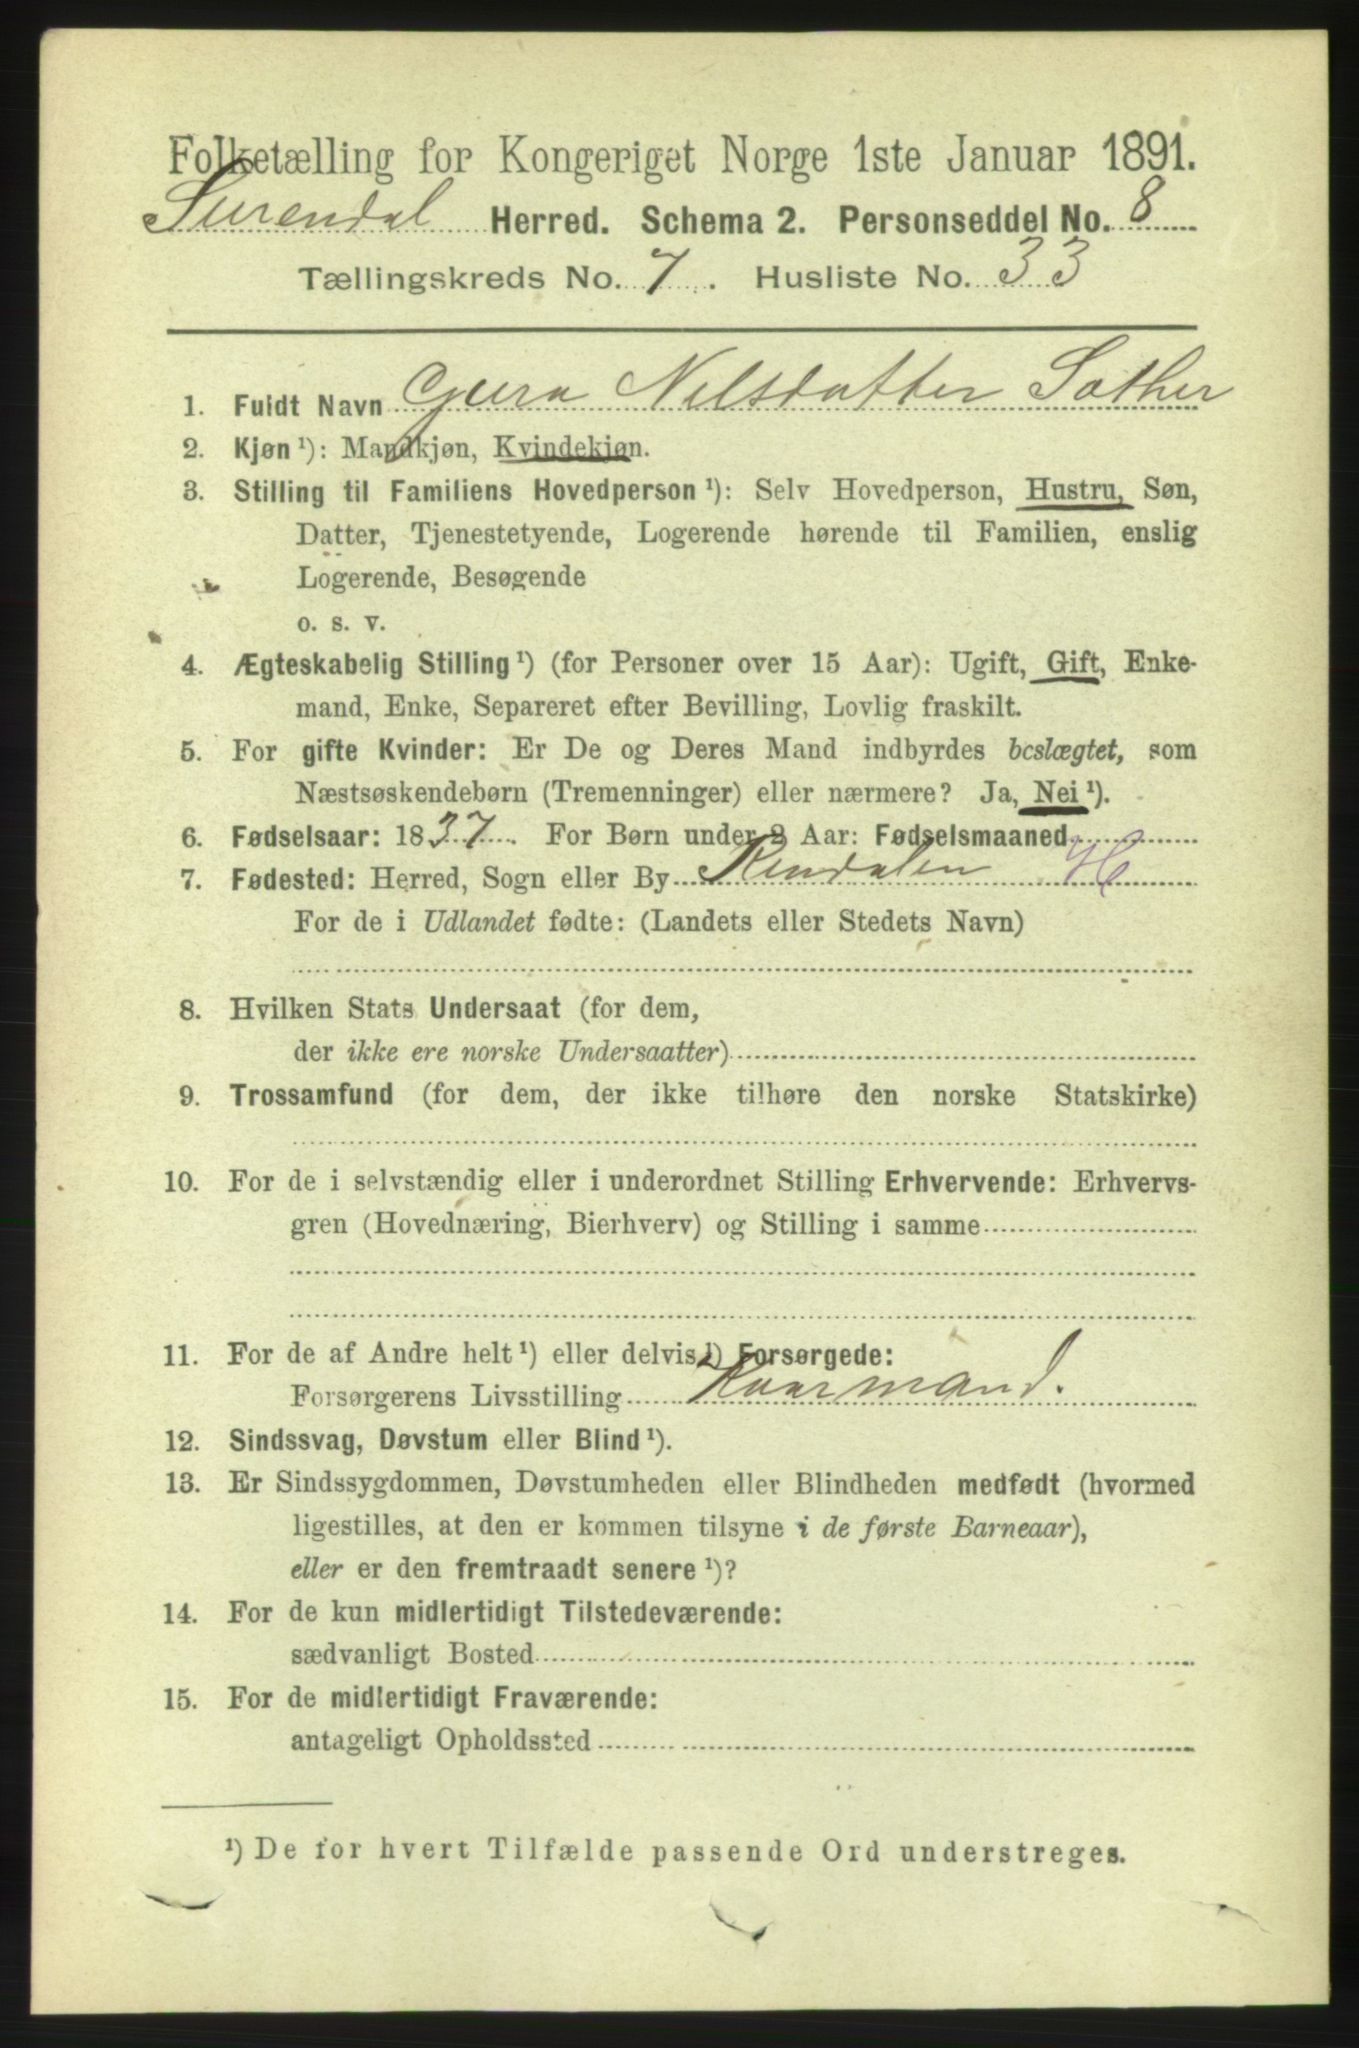 Folketælling for Kongeriget Norge 1ste Januar 1891.
Surendal Herred. Schema 2. Personseddel No. 8
Tællingskreds No. 7. Husliste No. 33
1. Fuldt Navn Gjura Nilsdatter Sæther
2. Kjøn ¹): Mandkjøn, Kvindekjøn.
3. Stilling til Familiens Hovedperson ¹): Selv Hovedperson, Hustru, Søn,
Datter, Tjenestetyende, Logerende hørende til Familien, enslig
Logerende, Besøgende
o. s. v.
4. Ægteskabelig Stilling ¹) (for Personer over 15 Aar): Ugift, Gift, Enke-
mand, Enke, Separeret efter Bevilling, Lovlig fraskilt.
5. For gifte Kvinder: Er De og Deres Mand indbyrdes beslægtet, som
Næstsøskendebørn (Tremenninger) eller nærmere? Ja, Nei ¹).
6. Fødselsaar: 1837. For Børn under 2 Aar: Fødselsmaaned
7. Fødested: Herred, Sogn eller By Rendalen H
For de i Udlandet fødte: (Landets eller Stedets Navn)
8. Hvilken Stats Undersaat (for dem,
der ikke ere norske Undersaatter)
9. Trossamfund (for dem, der ikke tilhøre den norske Statskirke)
10. For de i selvstændig eller i underordnet Stilling Erhvervende: Erhvervs-
gren (Hovednæring, Bierhverv) og Stilling i samme
11. For de af Andre helt ¹) eller delvis ¹) Forsørgede:
Forsørgerens Livsstilling Kaarmand.
12. Sindssvag, Døvstum eller Blind ¹).
13. Er Sindssygdommen, Døvstumheden eller Blindheden medfødt (hvormed
ligestilles, at den er kommen tilsyne i de første Barneaar),
eller er den fremtraadt senere ¹)?
14. For de kun midlertidigt Tilstedeværende:
sædvanligt Bosted
15. For de midlertidigt Fraværende:
antageligt Opholdssted
¹) De for hvert Tilfælde passende Ord understreges.